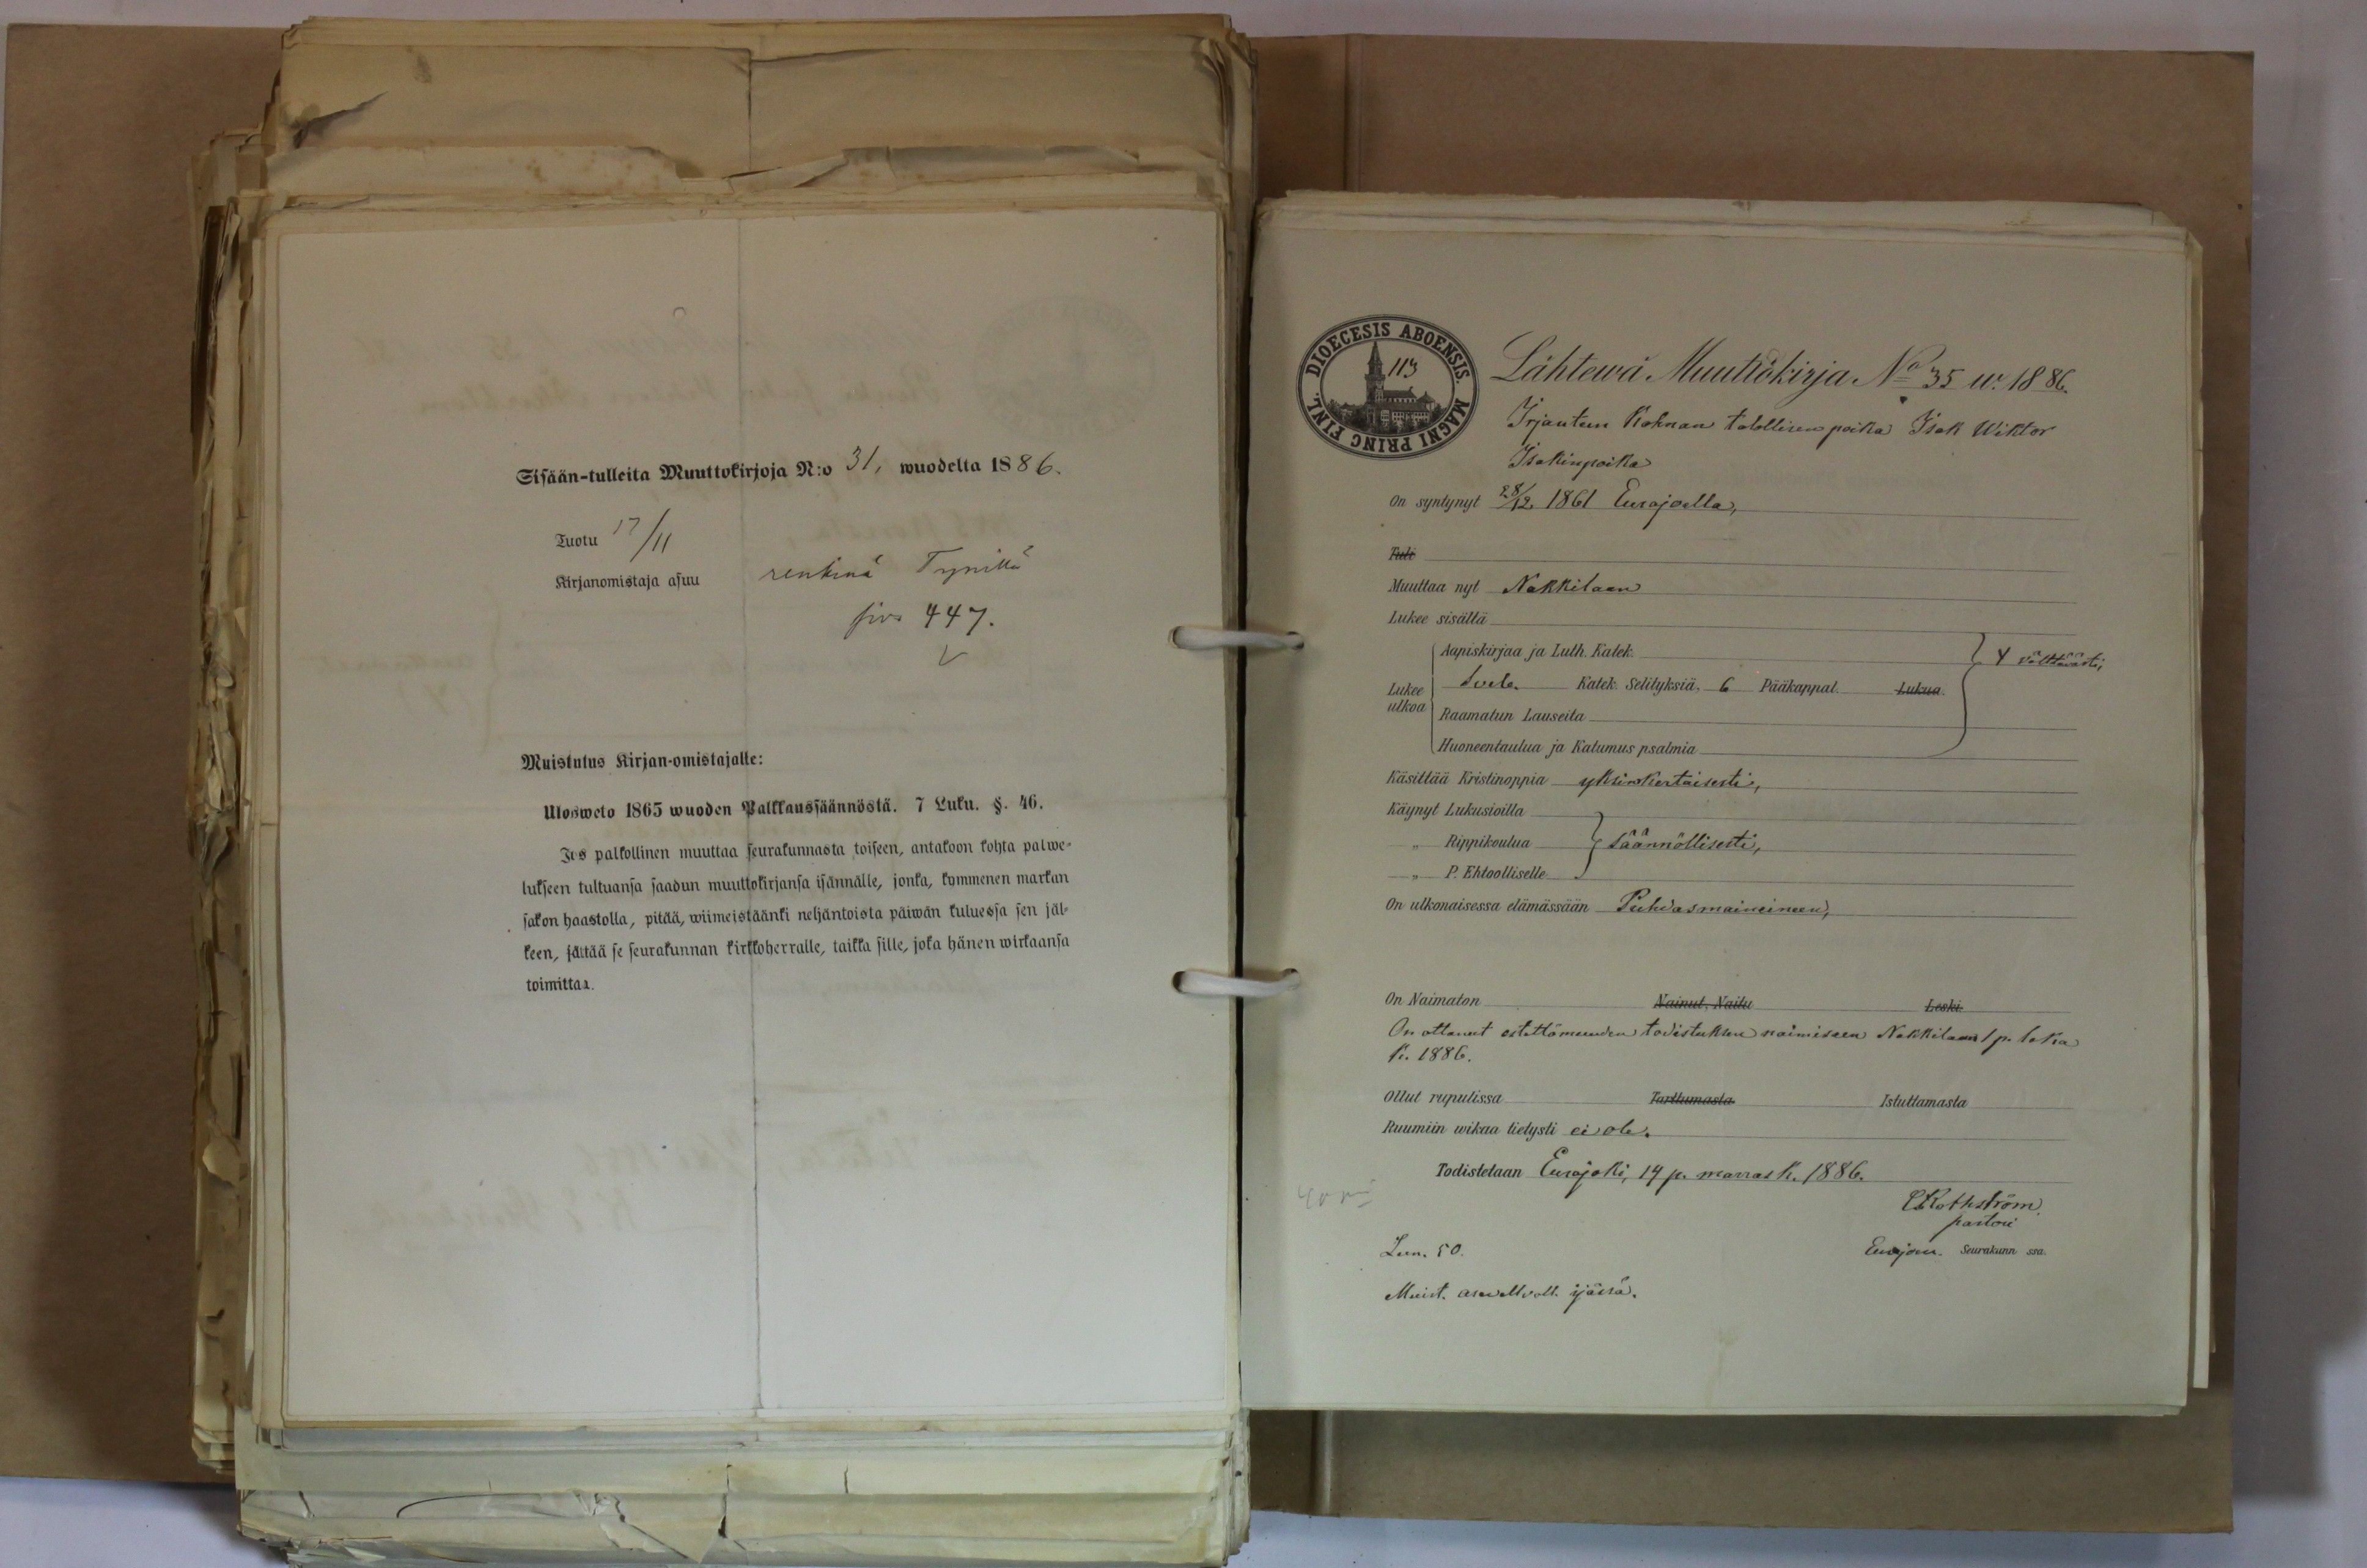 Sisään-tulleita Muuttokirjoja N:o 31, wuodelta 1886.
Tuotu 17/11
Kirjanomistaja asuu renkinä Tynillä
siv. 447.
Muistutus Kirjan-omistajalle:
Ulosweto 1865 wuoden Palkkaussäännöstä. 7 Luku. §. 46.
Jos palkollinen muuttaa seurakunnasta toiseen, antakoon kohta palwe-
lukseen tultuansa saadun muuttokirjansa isännälle, jonka, kymmenen markan
sakon haastolla, pitää, wiimeistäänki neljäntoista päiwän kuluessa sen jäl-
keen, jättää se seurakunnan kirkkoherralle, taikka sille, joka hänen wirkaansa
toimittaa.
DIOECESIS ABOENSIS. MAGNI PRINC FINL.
113
Lähtewä Muuttokirja No 35 w. 1886.
Irjanteen Kohnan talollisen poika Isak Wiktor
Isakinpoika
On syntynyt 28/12 1861 Eurajoella,
Tuli
Muuttaa nyt Nakkilaan
Lukee sisältä
Aapiskirjaa ja Luth. Katek.
Lukee ulkoa
Sveb. Katek. Selityksiä. 6 Pääkappal. Lukua.
Raamatun Lauseita
Huoneentaulua ja Katumus psalmia
välttävästi,
Käsittää Kristinoppia yksinkertaisesti,
Käynyt Lukusioilla
„ Rippikoulua säännöllisesti,
„ P. Ehtoolliselle
On ulkonaisessa elämässään Puhdasmaineinen,
On Naimaton Nainut, Naitu Leski.
On ottanut estettömyyden todistuksen naimiseen Nakkilaan 1 p. loka
k. 1886.
Ollut rupulissa Tarttumasta Istuttamasta
Ruumiin wikaa tietysti ei ole.
Todistetaan Eurajoki, 14 p. marrask. 1886.
C Rothström.
pastori
Lun. 50.
Eurajoen. Seurakunn ssa.
Muist. asevellvoll. ijässä.